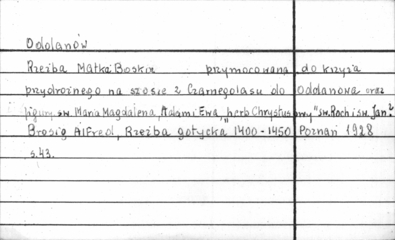 Odolanów
Rzeźba Matki Boskiej przymocowana do krzyża
przydrożnego na szosie z Czarnegolasu do Odolanowa oraz
figury św. Maria Magdalena, Adam i Ewa, "herb Chrystusowy" św. Roch i św. Jan.
Brosig Alfred, Rzeźba gotycka 1400-1450 Poznań 1928
s.43.